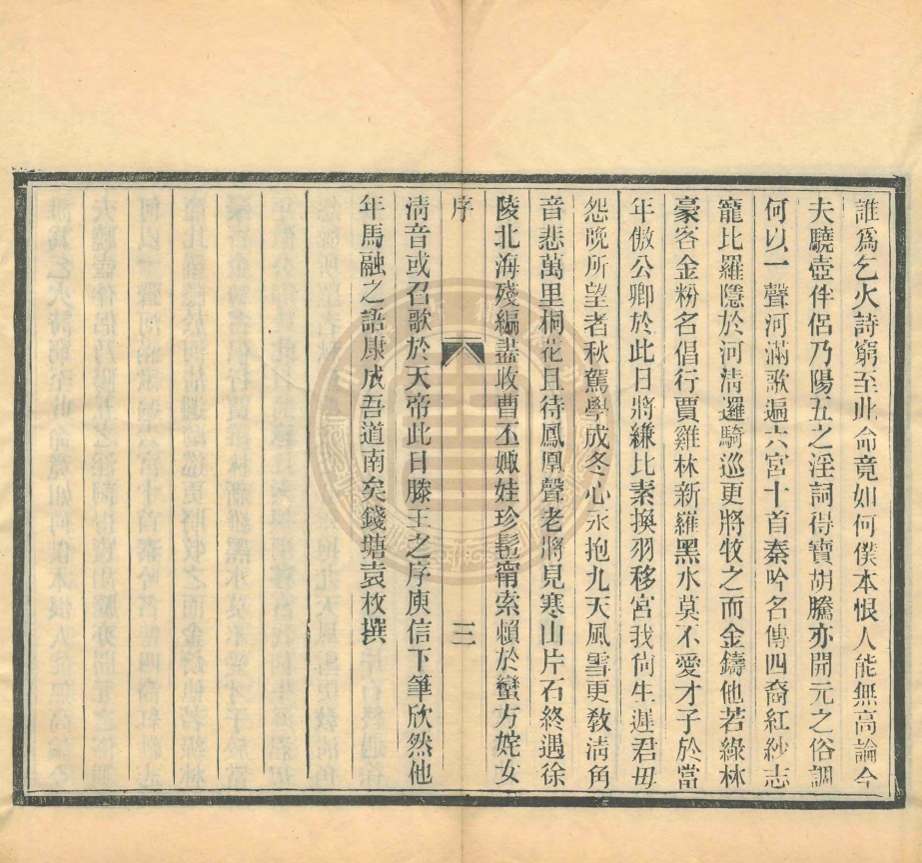 誰爲乞火詩窮至此命竟如何僕本恨人能無高論今
夫驍壺伴侶乃陽五之淫詞得寶胡騰亦開元之俗調
何以一聲河滿歌遍六宮十首秦吟名傳四裔紅紗志
寵比羅隱於河淸邏騎巡更將牧之而金鑄他若綠林
豪客金粉名倡行賈雞林新羅黑水莫不愛才子於當
年傲公卿於此日將縑比素換羽移宮我尙生遲君毋
怨晚所望者秋駕學成冬心永抱九天風雪更敎淸角
音悲萬里桐花且待鳳凰聲老將見寒山片石終遇徐
陵北海殘編盡收曹丕娵娃珍髢甯索賴於蠻方姹女
序
三
淸音或召歌於天帝此日滕王之序庾信下筆欣然他
年馬融之語康成吾道南矣錢塘袁枚撰